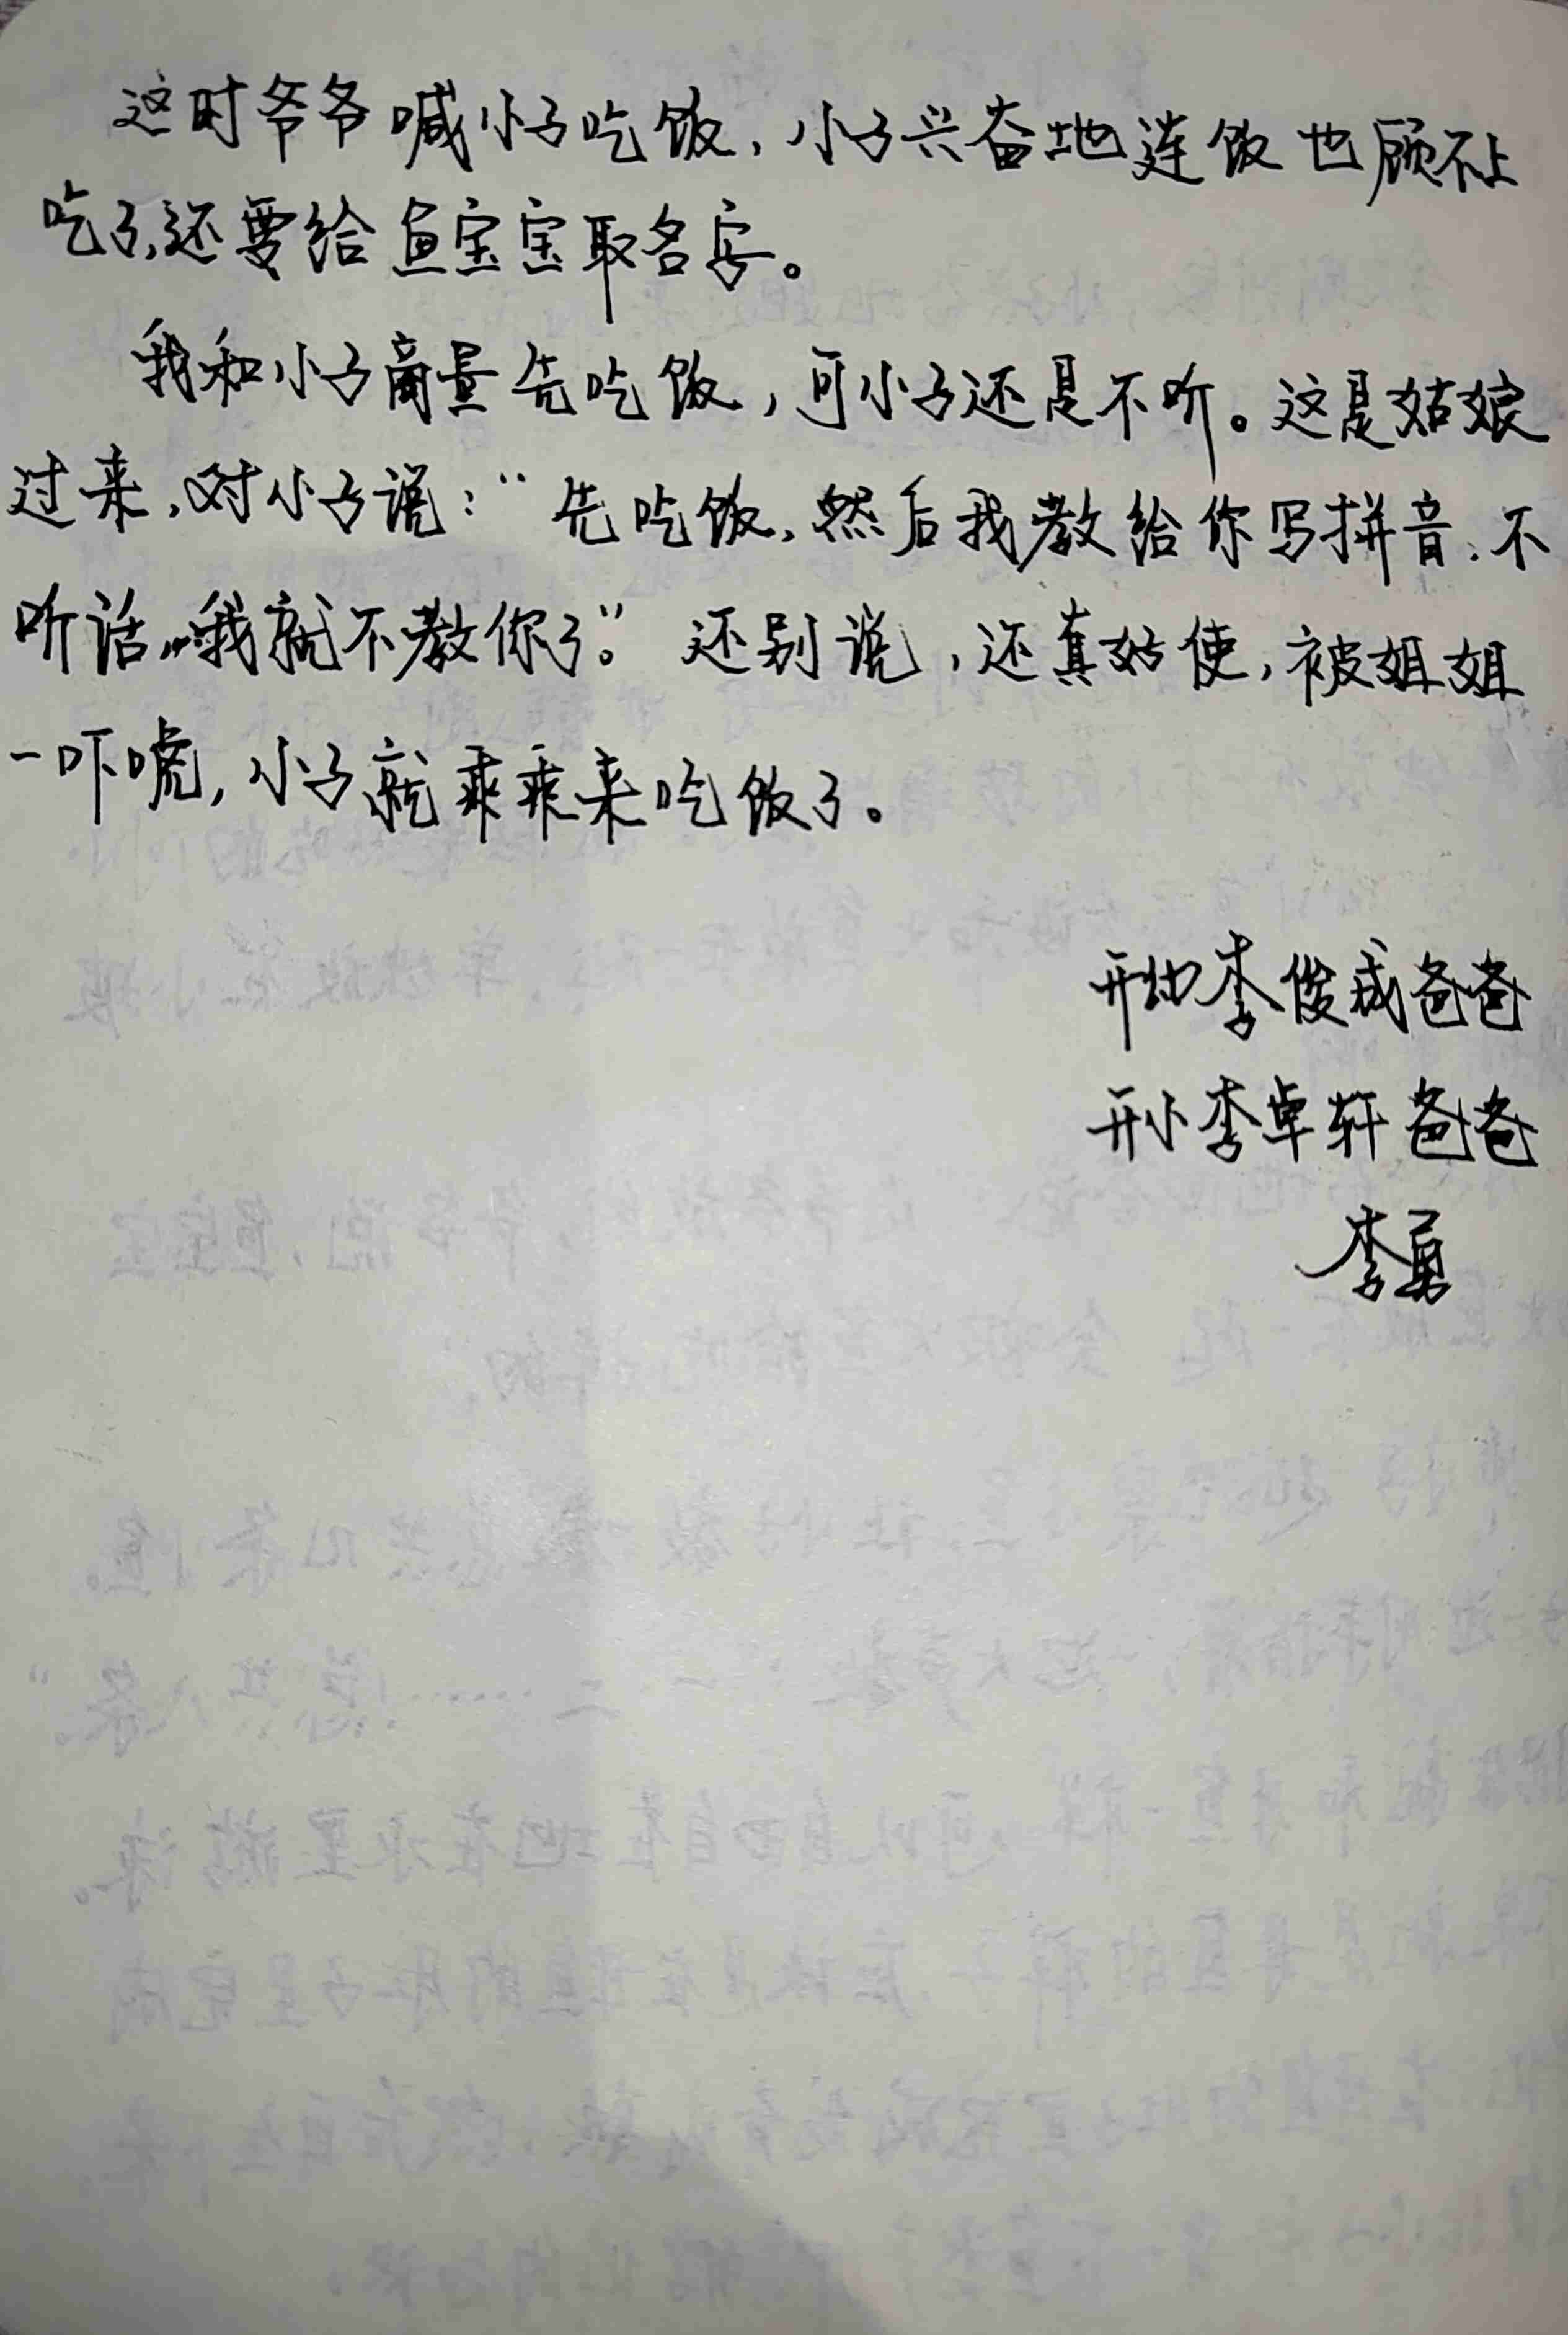 这时爷爷喊小子吃饭,小子兴奋地连饭也顾不上
吃了,还要给鱼宝宝取名字。
我和小子商量先吃饭,可小子还是不听。这是姑娘
过来,对小子说:“先吃饭,然后我教给你写拼音,不
听话,我就不教你了。”还别说,还真好使,被姐姐
一吓唬,小子就乖乖来吃饭了。
开幼李俊成爸爸
开小李卓轩爸爸
李勇